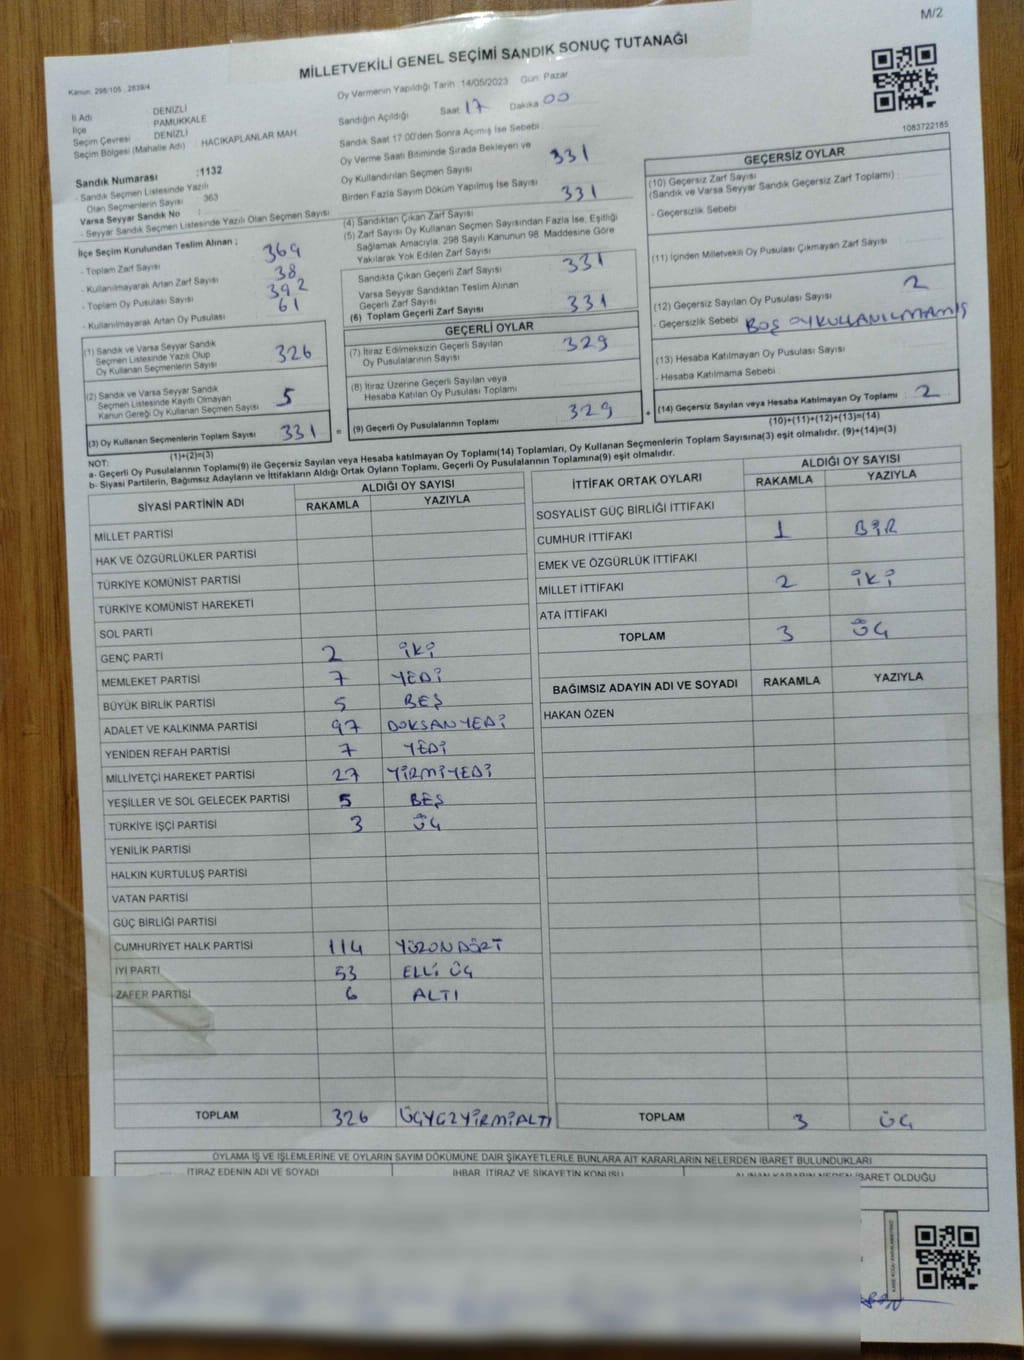 M/2
MİLLETVEKİLİ GENEL SEÇİMİ SANDIK SONUÇ TUTANAĞI
Kanun: 298/105 , 2839/4
Oy Vermenin Yapıldığı Tarih :14/05/2023 Gün: Pazar
İl Adı DENİZLİ
İlçe PAMUKKALE
Seçim Çevresi DENİZLİ
Seçim Bölgesi (Mahalle Adı) HACIKAPLANLAR MAH
Sandığın Açıldığı Saat 17 Dakika 00
Sandık Saat 17 00'den Sonra Açımış İse Sebebi :
Oy Verme Saati Bitiminde Sırada Bekleyen ve
Oy Kullandırılan Seçmen Sayısı 331
Birden Fazla Sayım Döküm Yapılmış İse Sayısı 331
1083722185
Sandık Numarası :1132
- Sandık Seçmen Listesinde Yazılı
Olan Seçmenlerin Sayısı : 363
Varsa Seyyar Sandık No :
- Seyyar Sandık Seçmen Listesinde Yazılı Olan Seçmen Sayısı :
İlçe Seçim Kurulundan Teslim Alınan ;
- Toplam Zarf Sayısı 369
- Kullanılmayarak Artan Zarf Sayısı 38
- Toplam Oy Pusulası Sayısı 392
- Kullanılmayarak Artan Oy Pusulası 61
(1) Sandık ve Varsa Seyyar Sandık
Seçmen Listesinde Yazılı Olup
Oy Kullanan Seçmenlerin Sayısı 326
(2) Sandık ve Varsa Seyyar Sandık
Seçmen Listesinde Kayıtlı Olmayan
Kanun Gereği Oy Kullanan Seçmen Sayısı 5
(3) Oy Kullanan Seçmenlerin Toplam Sayısı 331 =
(1)+(2)=(3)
(4) Sandıktan Çıkan Zarf Sayısı
(5) Zarf Sayısı Oy Kullanan Seçmen Sayısından Fazla İse, Eşitliği
Sağlamak Amacıyla, 298 Sayılı Kanunun 98. Maddesine Göre
Yakılarak Yok Edilen Zarf Sayısı
Sandıkta Çıkan Geçerli Zarf Sayısı 331
Varsa Seyyar Sandıktan Teslim Alınan
Geçerli Zarf Sayısı
(6) Toplam Geçerli Zarf Sayısı 331
GEÇERLİ OYLAR
(7) İtiraz Edilmeksizin Geçerli Sayılan
Oy Pusulalarının Sayısı 329
(8) İtiraz Üzerine Geçerli Sayılan veya
Hesaba Katılan Oy Pusulası Toplamı
(9) Geçerli Oy Pusulalarının Toplamı 329 +
GEÇERSİZ OYLAR
(10) Geçersiz Zarf Sayısı
(Sandık ve Varsa Seyyar Sandık Geçersiz Zarf Toplamı) :
- Geçersizlik Sebebi
(11) İçinden Milletvekili Oy Pusulası Çıkmayan Zarf Sayısı
(12) Geçersiz Sayılan Oy Pusulası Sayısı 2
- Geçersizlik Sebebi BOŞ OYKULLANILMAMIŞ
(13) Hesaba Katılmayan Oy Pusulası Sayısı
- Hesaba Katılmama Sebebi :
(14) Geçersiz Sayılan veya Hesaba Katılmayan Oy Toplamı : 2
(10)+(11)+(12)+(13)=(14)
NOT:
a- Geçerli Oy Pusulalarının Toplamı(9) ile Geçersiz Sayılan veya Hesaba katılmayan Oy Toplamı(14) Toplamları, Oy Kullanan Seçmenlerin Toplam Sayısına(3) eşit olmalıdır. (9)+(14)=(3)
b- Siyasi Partilerin, Bağımsız Adayların ve İttifakların Aldığı Ortak Oyların Toplamı, Geçerli Oy Pusulalarının Toplamına(9) eşit olmalıdır.
SİYASİ PARTİNİN ADI ALDIĞI OY SAYISI
RAKAMLA YAZIYLA
MİLLET PARTİSİ
HAK VE ÖZGÜRLÜKLER PARTİSİ
TÜRKİYE KOMÜNİST PARTİSİ
TÜRKİYE KOMÜNİST HAREKETİ
SOL PARTİ
GENÇ PARTİ 2 İKİ
MEMLEKET PARTİSİ 7 YEDİ
BÜYÜK BİRLİK PARTİSİ 5 BEŞ
ADALET VE KALKINMA PARTİSİ 97 DOKSANYEDİ
YENİDEN REFAH PARTİSİ 7 YEDİ
MİLLİYETÇİ HAREKET PARTİSİ 27 YİRMİYEDİ
YEŞİLLER VE SOL GELECEK PARTİSİ 5 BEŞ
TÜRKİYE İŞÇİ PARTİSİ 3 ÜÇ
YENİLİK PARTİSİ
HALKIN KURTULUŞ PARTİSİ
VATAN PARTİSİ
GÜÇ BİRLİĞİ PARTİSİ
CUMHURİYET HALK PARTİSİ 114 YÜZONDÖRT
İYİ PARTİ 53 ELLİ ÜÇ
ZAFER PARTİSİ 6 ALTI
TOPLAM 326 ÜÇYÜZYİRMİALTI
İTTİFAK ORTAK OYLARI ALDIĞI OY SAYISI
RAKAMLA YAZIYLA
SOSYALİST GÜÇ BİRLİĞİ İTTİFAKI
CUMHUR İTTİFAKI 1 BİR
EMEK VE ÖZGÜRLÜK İTTİFAKI
MİLLET İTTİFAKI 2 İKİ
ATA İTTİFAKI
TOPLAM 3 ÜÇ
BAĞIMSIZ ADAYIN ADI VE SOYADI RAKAMLA YAZIYLA
HAKAN ÖZEN
TOPLAM 3 ÜÇ
OYLAMA İŞ VE İŞLEMLERİNE VE OYLARIN SAYIM DÖKÜMÜNE DAİR ŞİKAYETLERLE BUNLARA AİT KARARLARIN NELERDEN İBARET BULUNDUKLARI
İTİRAZ EDENİN ADI VE SOYADI İHBAR, İTİRAZ VE ŞİKAYETİN KONUSU ALINAN KARARIN NEDEN İBARET OLDUĞU